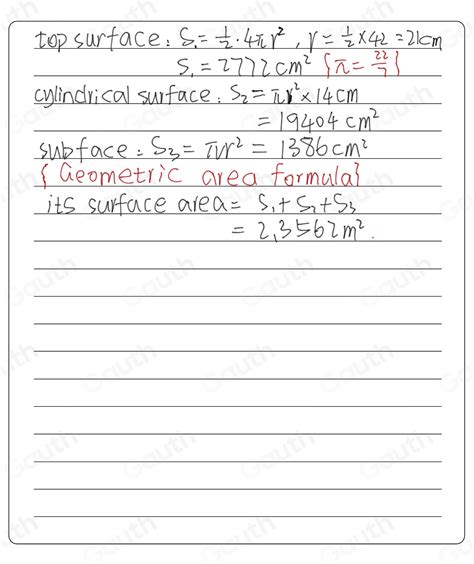 top surface: S₁=½·4πr², r=½×42=21cm
S₁=2772cm² {π=22/7}
cylindrical surface: S₂=πr²×14cm
=19404cm²
subface: S₃=πr²=1386cm²
{Geometric area formula}
its surface area= S₁+S₂+S₃
=2,3562m².
Gauth